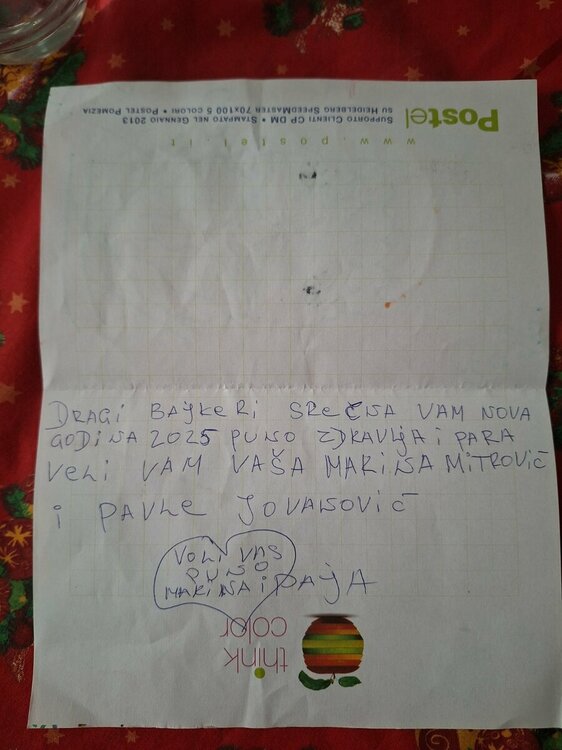 Postel
SUPPORTO CLIENTI CP DM • STAMPATO NEL GENNAIO 2013
SU HEIDELBERG SPEEDMASTER 70X100 5 COLORI • POSTEL POMEZIA
www.postel.it
DRAGI BAJKERI SREČNA VAM NOVA
GODINA 2025 PUNO ZDRAVLJA I PARA
VELI VAM VAŠA MARINA MITROVIĆ
I PAVLE JOVANOVIĆ
VOLI VAS
PUNO
MARINA I PAJA
think
color